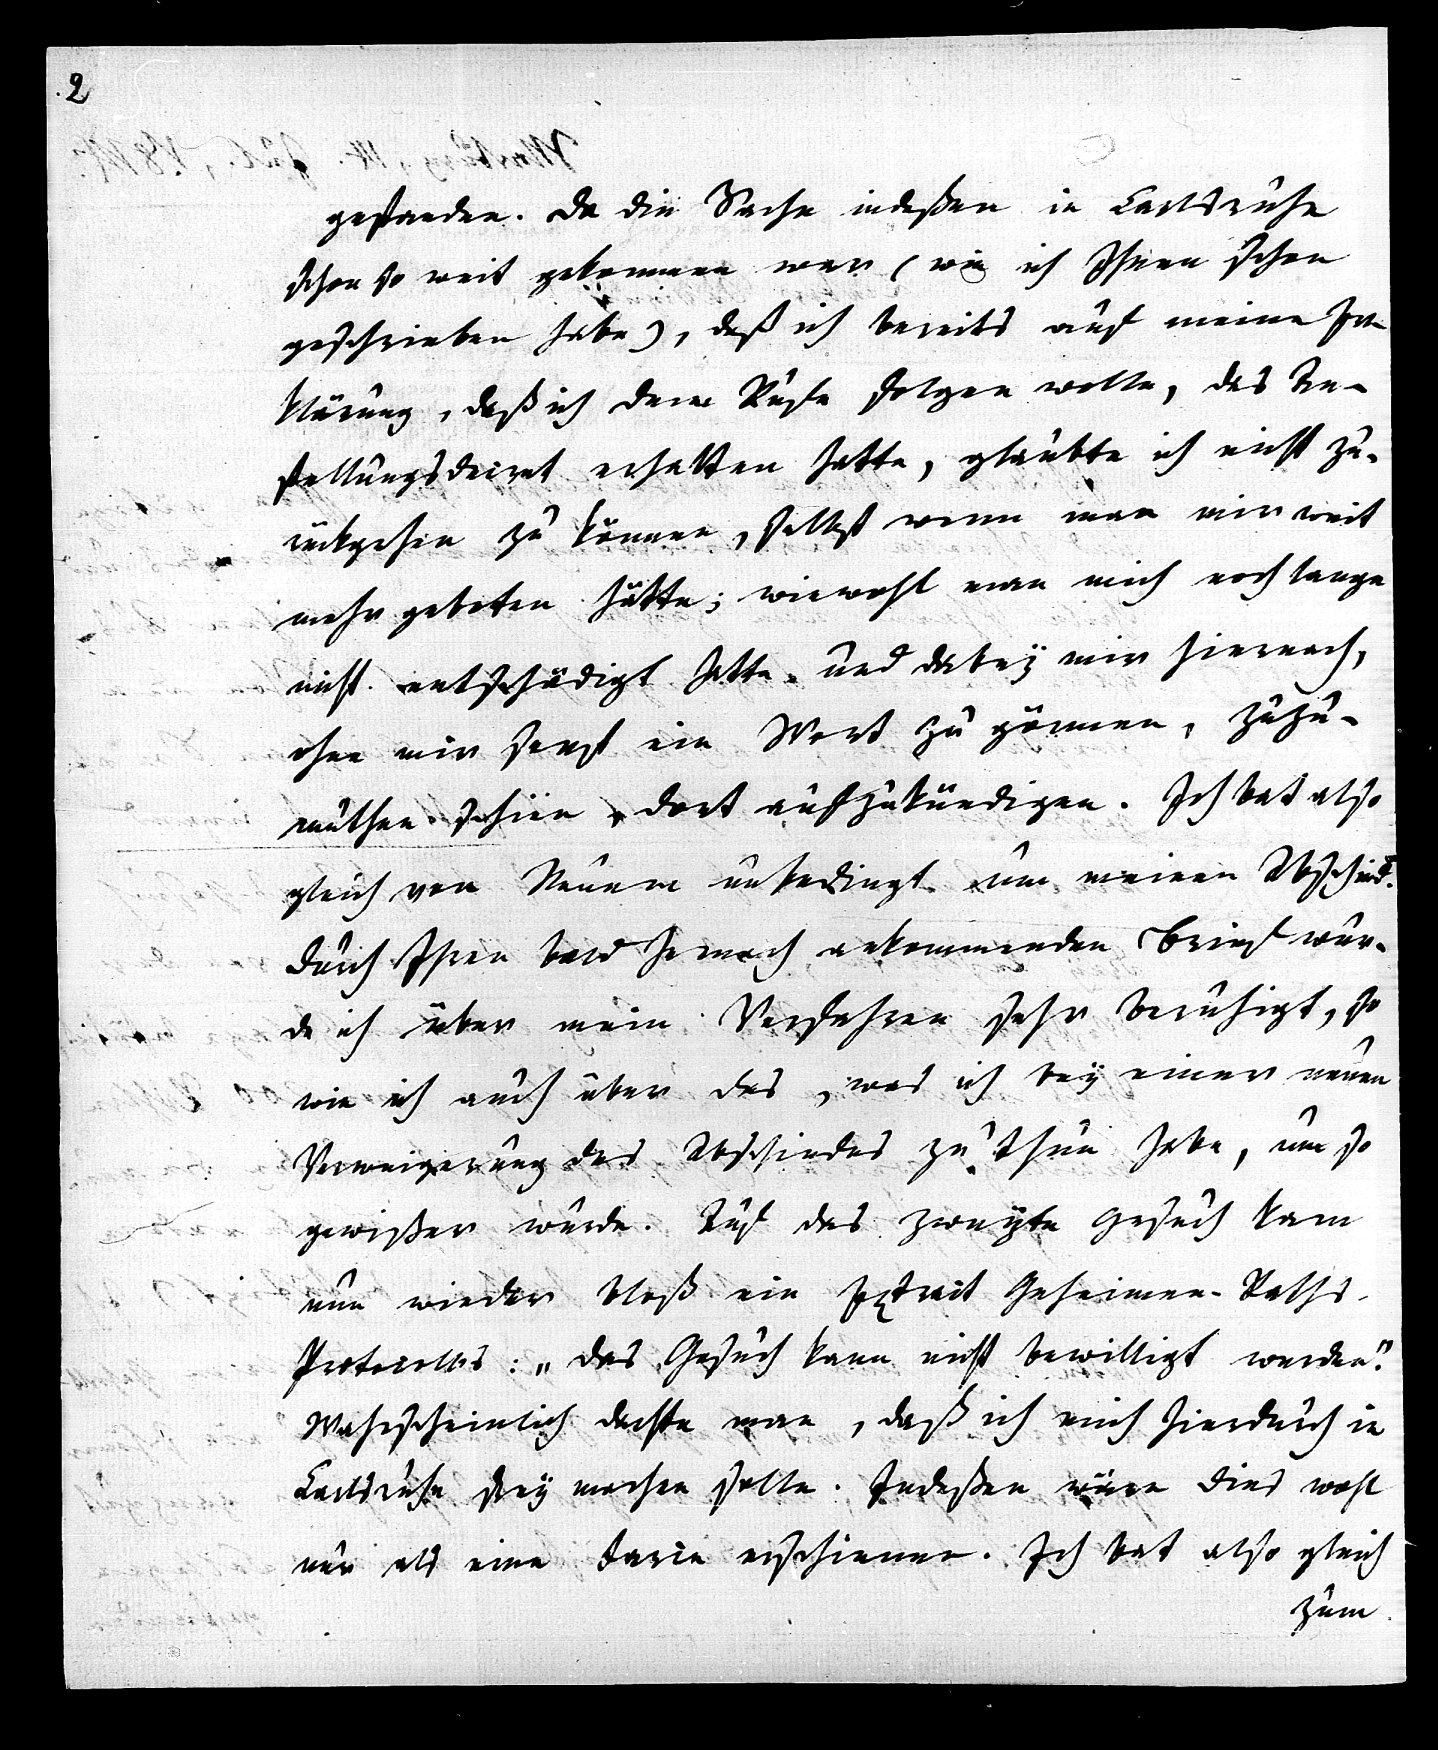 2
gestanden. Da die Sache indeßen in Carlsruhe
schon so weit gekommen war (wie ich Ihnen schon
geschrieben habe), daß ich bereits auf meine Er-
klärung, daß ich dem Rufe folgen wolle, das An-
stellungsdecret erhalten hatte, glaubte ich nicht zu-
rückgehen zu können, selbst wenn man mir weit
mehr geboten hätte; wiewohl man mich noch lange
nicht entschädigt hatte und dabey mir hiernach,
ohne mir sonst ein Wort zu gönnen, zuzu-
muthen schien dort aufzukündigen. Ich bat also
gleich von Neuem unbedingt um meinen Abschied.
Durch Ihren bald hernach ankommenden Brief wur-
de ich über mein Verfahren sehr beruhigt, so
wie ich auch über das, was ich bey einer neuen
Verweigerung des Abschiedes zu thun habe, um so
gewißer wurde. Auf das zweyte Gesuch kam
nun wieder bloß ein Extract Geheimen-Raths-
Protocolls: „das Gesuch kann nicht bewilligt werden."
Wahrscheinlich dachte man, daß ich mich hierdurch in
Carlsruhe frey machen solle. Indeßen wäre dies wohl
nur als eine erschienen. Ich bat also gleich
zum